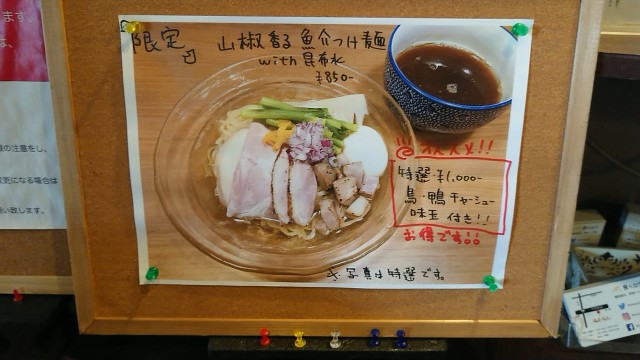 限定 山椒香る魚介つけ麺
with 昆布水
¥850-
オススメ!!
特選 ¥1,000-
鳥・鴨チャーシュー
味玉 付き!!
お得です!!
※写真は特選です。
ます。
の注意をし、
変更になる場合は
願い致します。